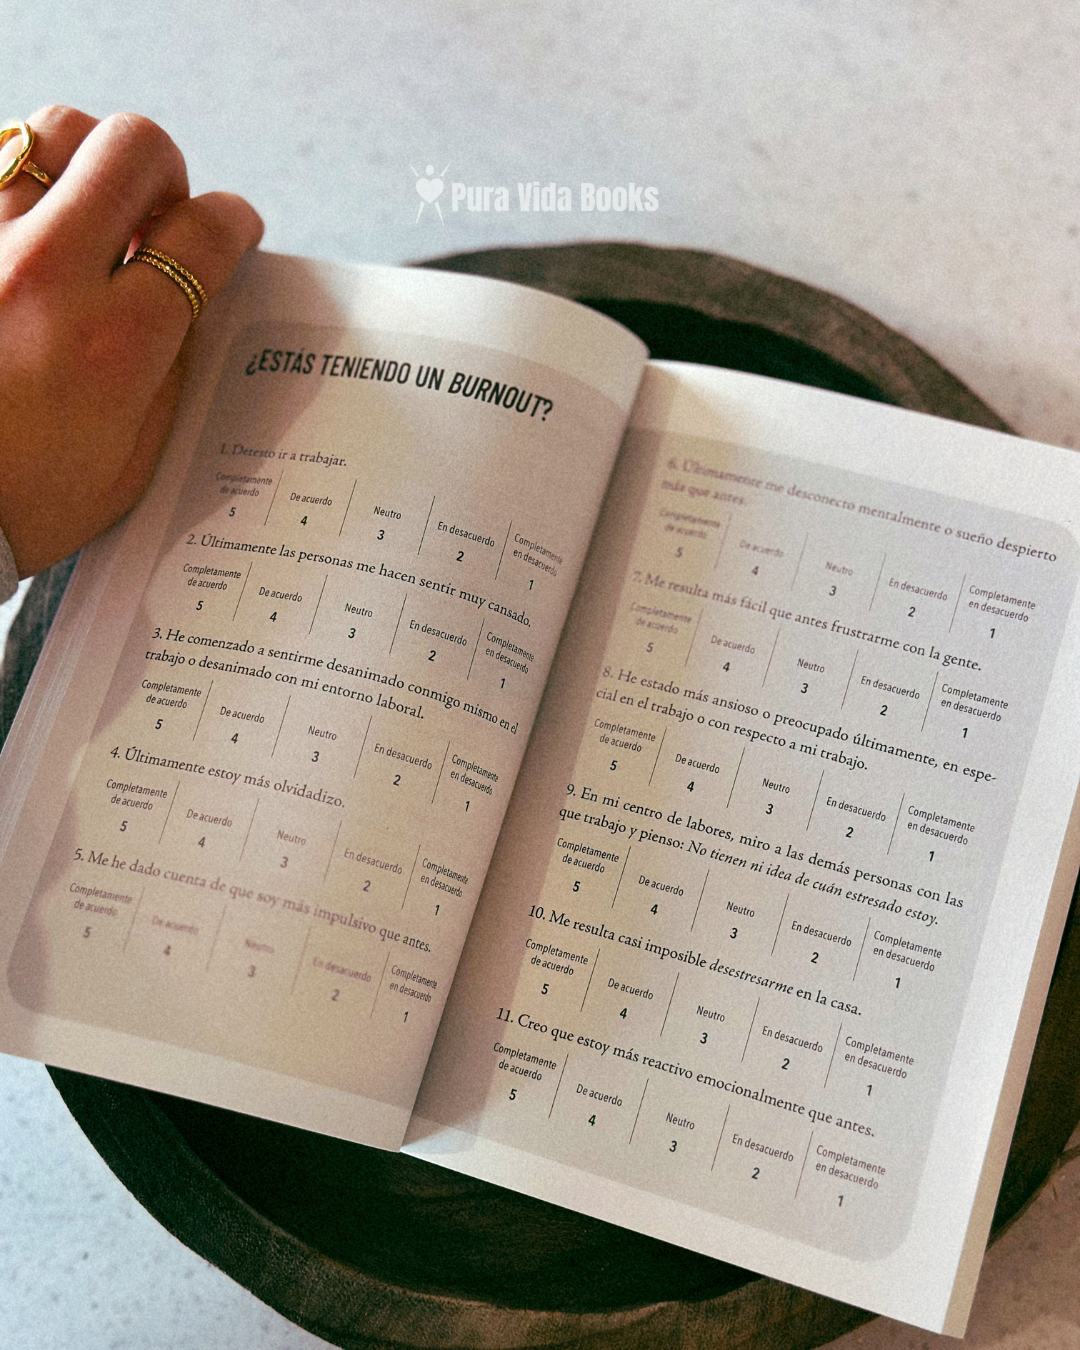 Pura Vida Books
¿ESTÁS TENIENDO UN BURNOUT?
1. Detesto ir a trabajar.
Completamente
de acuerdo
5
De acuerdo
4
Neutro
3
En desacuerdo
2
Completamente
en desacuerdo
1
2. Últimamente las personas me hacen sentir muy cansado.
Completamente
de acuerdo
5
De acuerdo
4
Neutro
3
En desacuerdo
2
Completamente
en desacuerdo
1
3. He comenzado a sentirme desanimado conmigo mismo en el
trabajo o desanimado con mi entorno laboral.
Completamente
de acuerdo
5
De acuerdo
4
Neutro
3
En desacuerdo
2
Completamente
en desacuerdo
1
4. Últimamente estoy más olvidadizo.
Completamente
de acuerdo
5
De acuerdo
4
Neutro
3
En desacuerdo
2
Completamente
en desacuerdo
1
5. Me he dado cuenta de que soy más impulsivo que antes.
Completamente
de acuerdo
5
De acuerdo
4
Neutro
3
En desacuerdo
2
Completamente
en desacuerdo
1
6. Últimamente me desconecto mentalmente o sueño despierto
más que antes.
Completamente
de acuerdo
5
De acuerdo
4
Neutro
3
En desacuerdo
2
Completamente
en desacuerdo
1
7. Me resulta más fácil que antes frustrarme con la gente.
Completamente
de acuerdo
5
De acuerdo
4
Neutro
3
En desacuerdo
2
Completamente
en desacuerdo
1
8. He estado más ansioso o preocupado últimamente, en espe-
cial en el trabajo o con respecto a mi trabajo.
Completamente
de acuerdo
5
De acuerdo
4
Neutro
3
En desacuerdo
2
Completamente
en desacuerdo
1
9. En mi centro de labores, miro a las demás personas con las
que trabajo y pienso: No tienen ni idea de cuán estresado estoy.
Completamente
de acuerdo
5
De acuerdo
4
Neutro
3
En desacuerdo
2
Completamente
en desacuerdo
1
10. Me resulta casi imposible desestresarme en la casa.
Completamente
de acuerdo
5
De acuerdo
4
Neutro
3
En desacuerdo
2
Completamente
en desacuerdo
1
11. Creo que estoy más reactivo emocionalmente que antes.
Completamente
de acuerdo
5
De acuerdo
4
Neutro
3
En desacuerdo
2
Completamente
en desacuerdo
1